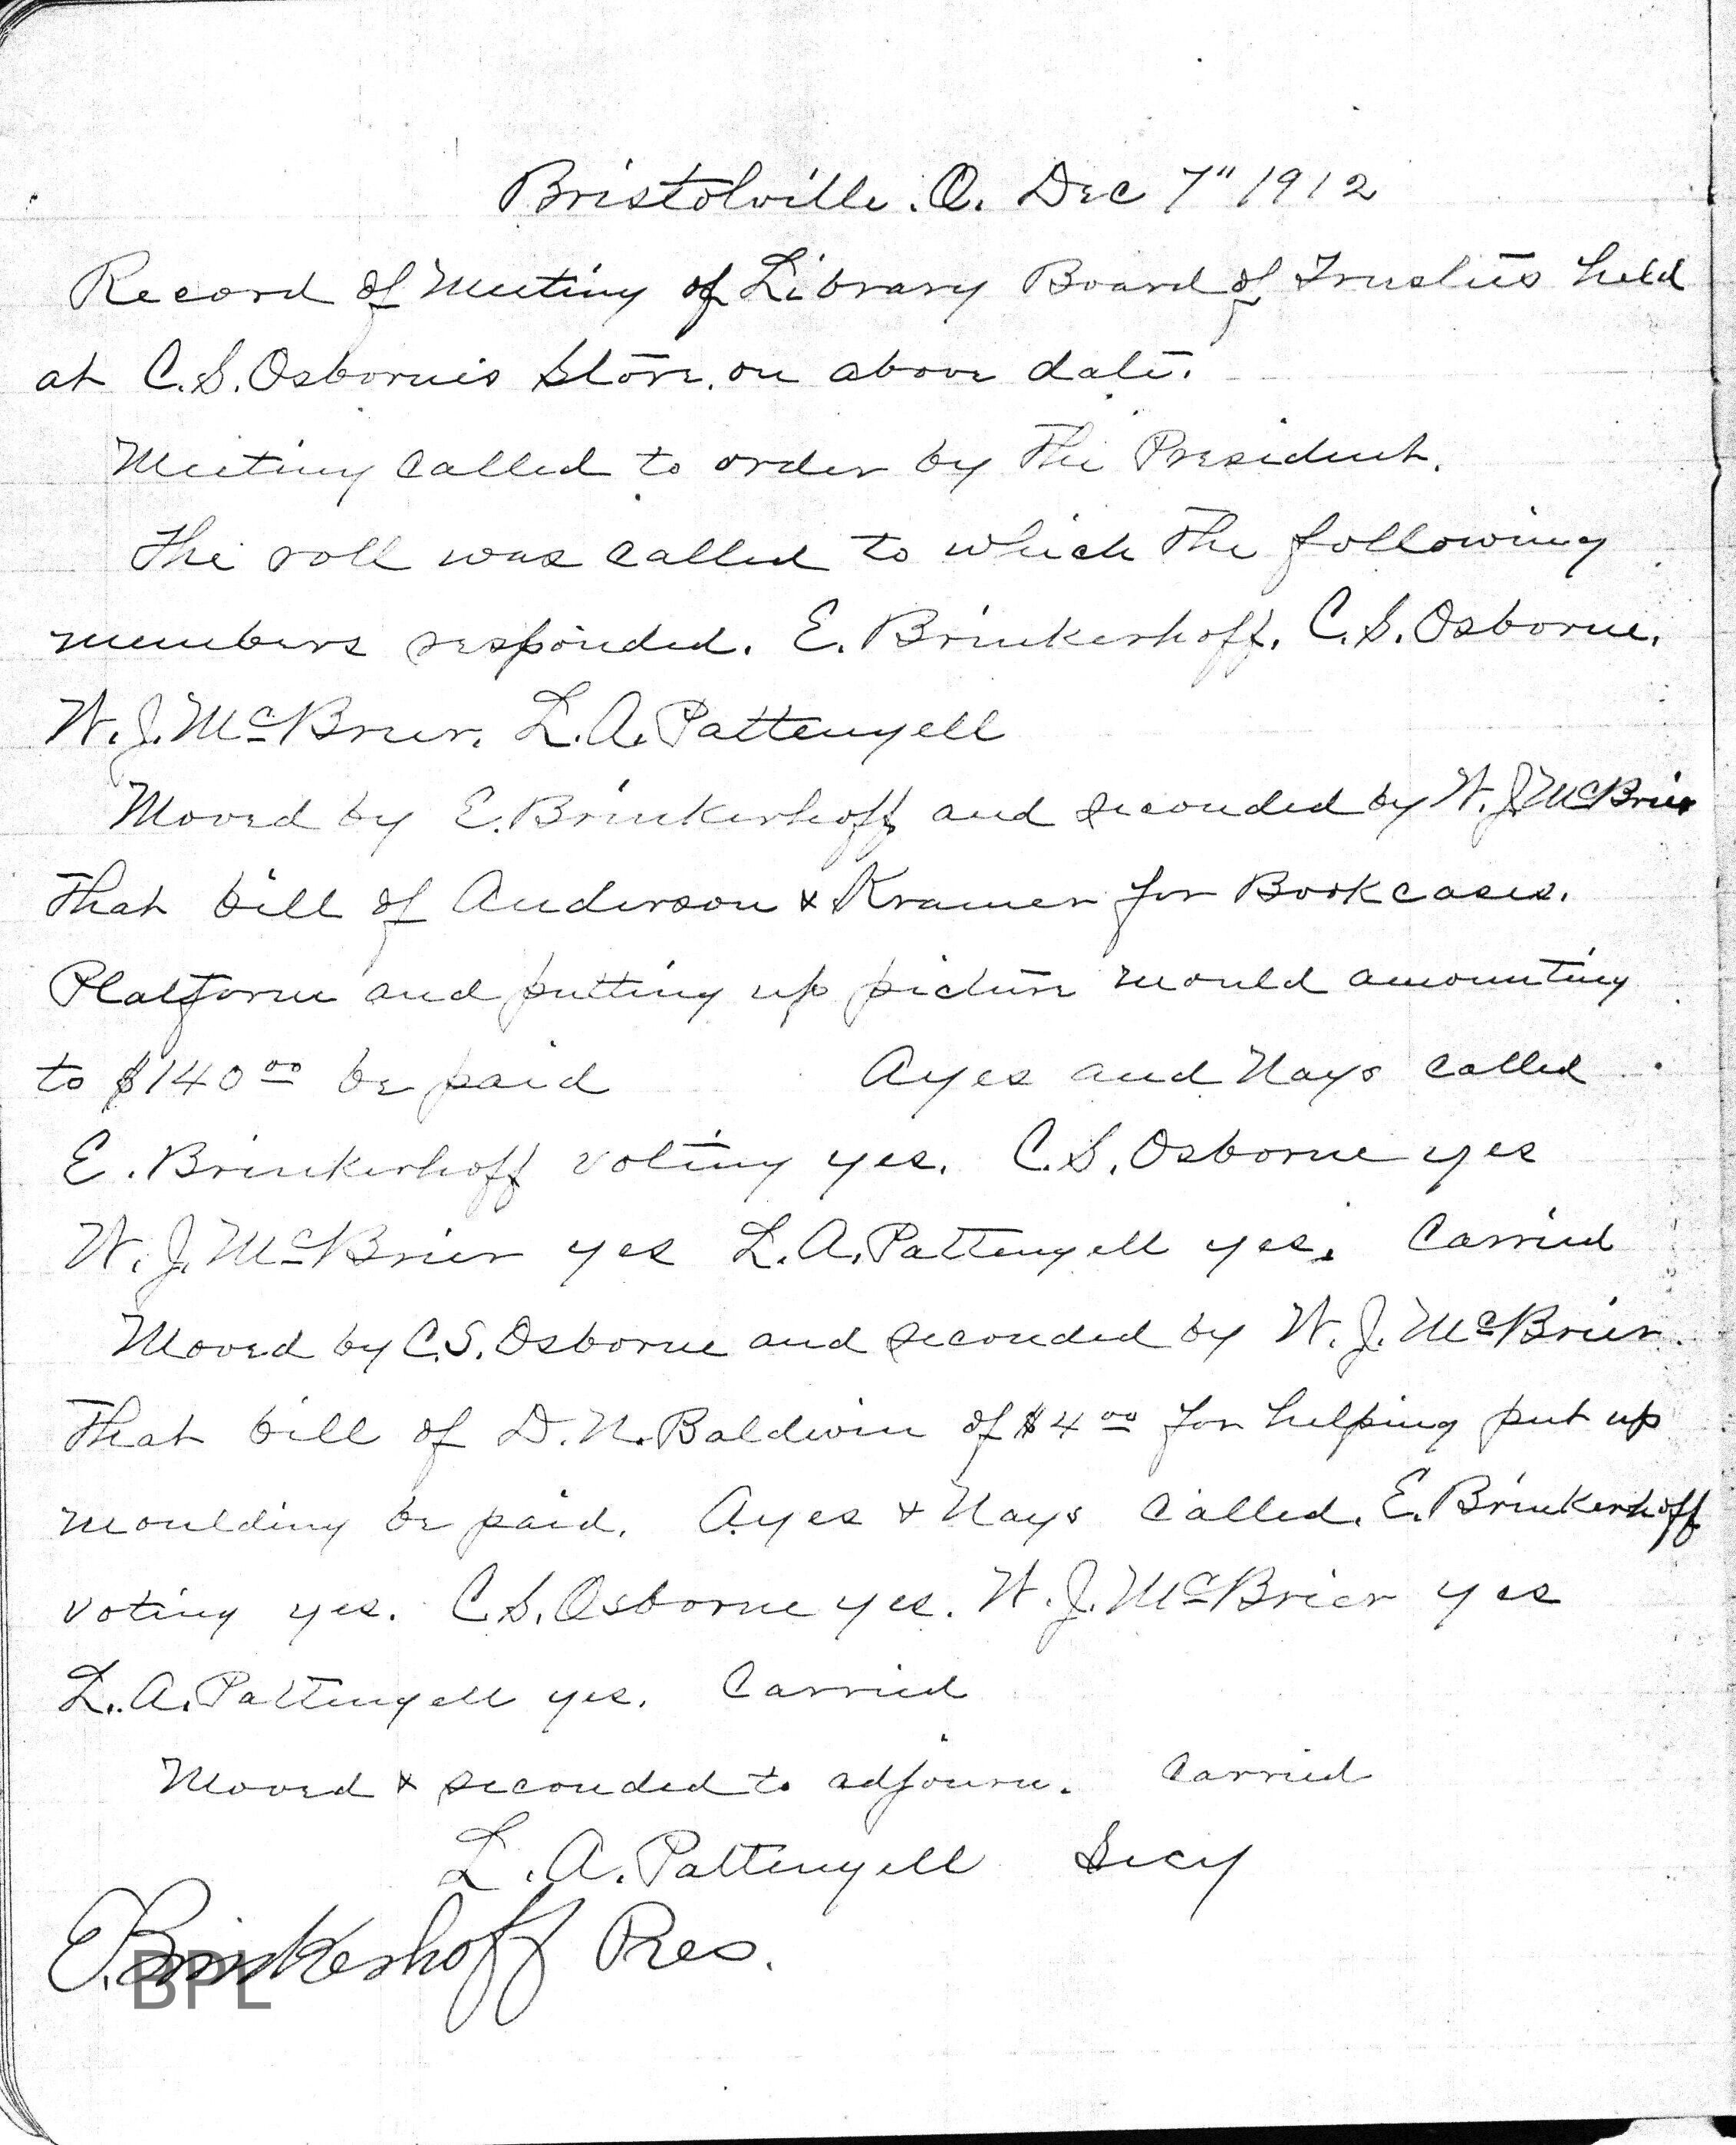 Bristolville. O. Dec 7" 1912
Record of Meeting of Library Board of Trustees held
at C.S. Osbornes Store. on above date.
Meeting called to order by the President.
The roll was called to which the following
members responded. E. Brinkerhoff. C.S. Osborne.
W.J. McBrier. L.A. Pattengell
Moved by E. Brinkerhoff and seconded by W.J. McBrier
that bill of Anderson & Kramer for Bookcases.
Platform and putting up picture mould amounting
to $140 00 be paid Ayes and Nays called
E. Brinkerhoff voting yes. C.S. Osborne yes
W.J. McBrier yes L.A. Pattengell yes. Carried
Moved by C.S. Osborne and seconded by W.J. McBrier.
that bill of D.N. Baldwin of $4 00 for helping put up
moulding be paid. Ayes & Nays called. E. Brinkerhoff
voting yes. C.S. Osborne yes. W.J. McBrier yes
L.A. Pattengell yes. Carried
Moved & seconded to adjourn. Carried
L.A. Pattengell Secy
E. Brinkerhoff Pres.
BPL